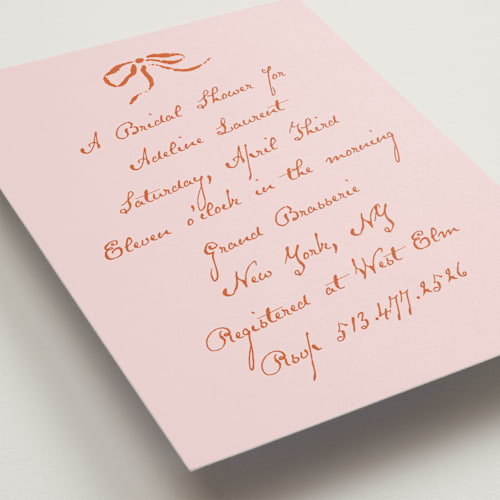 A Bridal Shower for
Adeline Laurent
Saturday, April Third
Eleven o'clock in the morning
Grand Brasserie
New York, NY
Registered at West Elm
Rsvp 513.477.2526